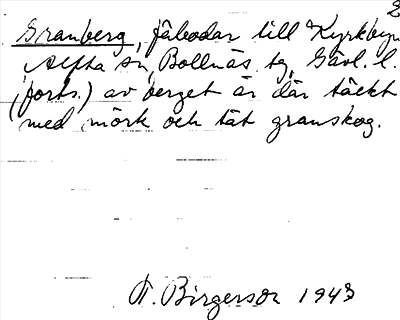 2
Granberg, fäbodar till Kyrkbyn
Alfta sn, Bollnäs tg, Gävl. l.
(forts.) av berget är där täckt
med mörk och tät granskog.
T. Birgerson 1943